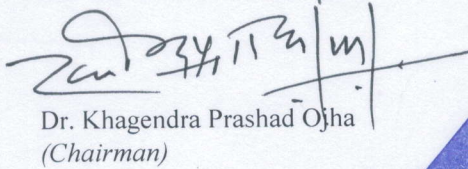 Dr. Khagendra Prashad Ojha
(Chairman)